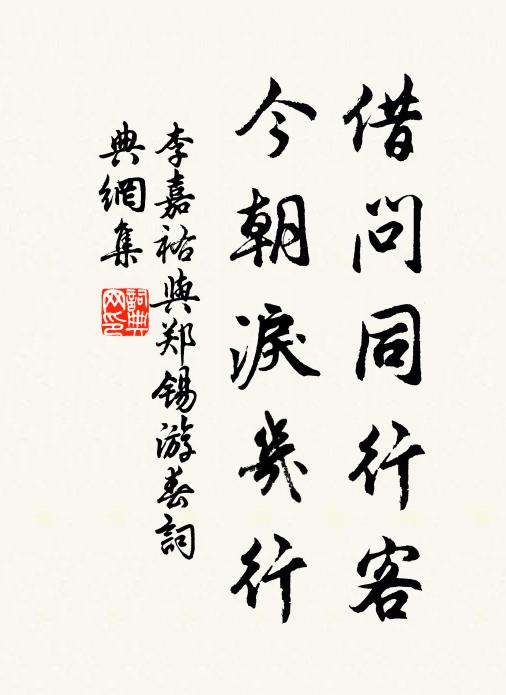 借问同行客
今朝淚幾行
李嘉祐與郑锡游春詞
典網集
詞典网印